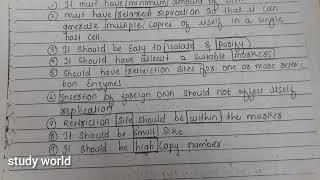 ① It must have minimum amount of DNA
② must have relaxed replication so that it can
generate multiple copies of itself in a single
host cell.
③ It should be easy to isolate & purify
④ It should have atleast 2 suitable markers
⑤ Should have restriction sites for one or more restri
ion Enzymes
⑥ Insertion of foreign DNA should not effect itself
replication
⑦ Restriction site should be within the marker
⑧ It should be small size
⑨ It should be high copy number
study world